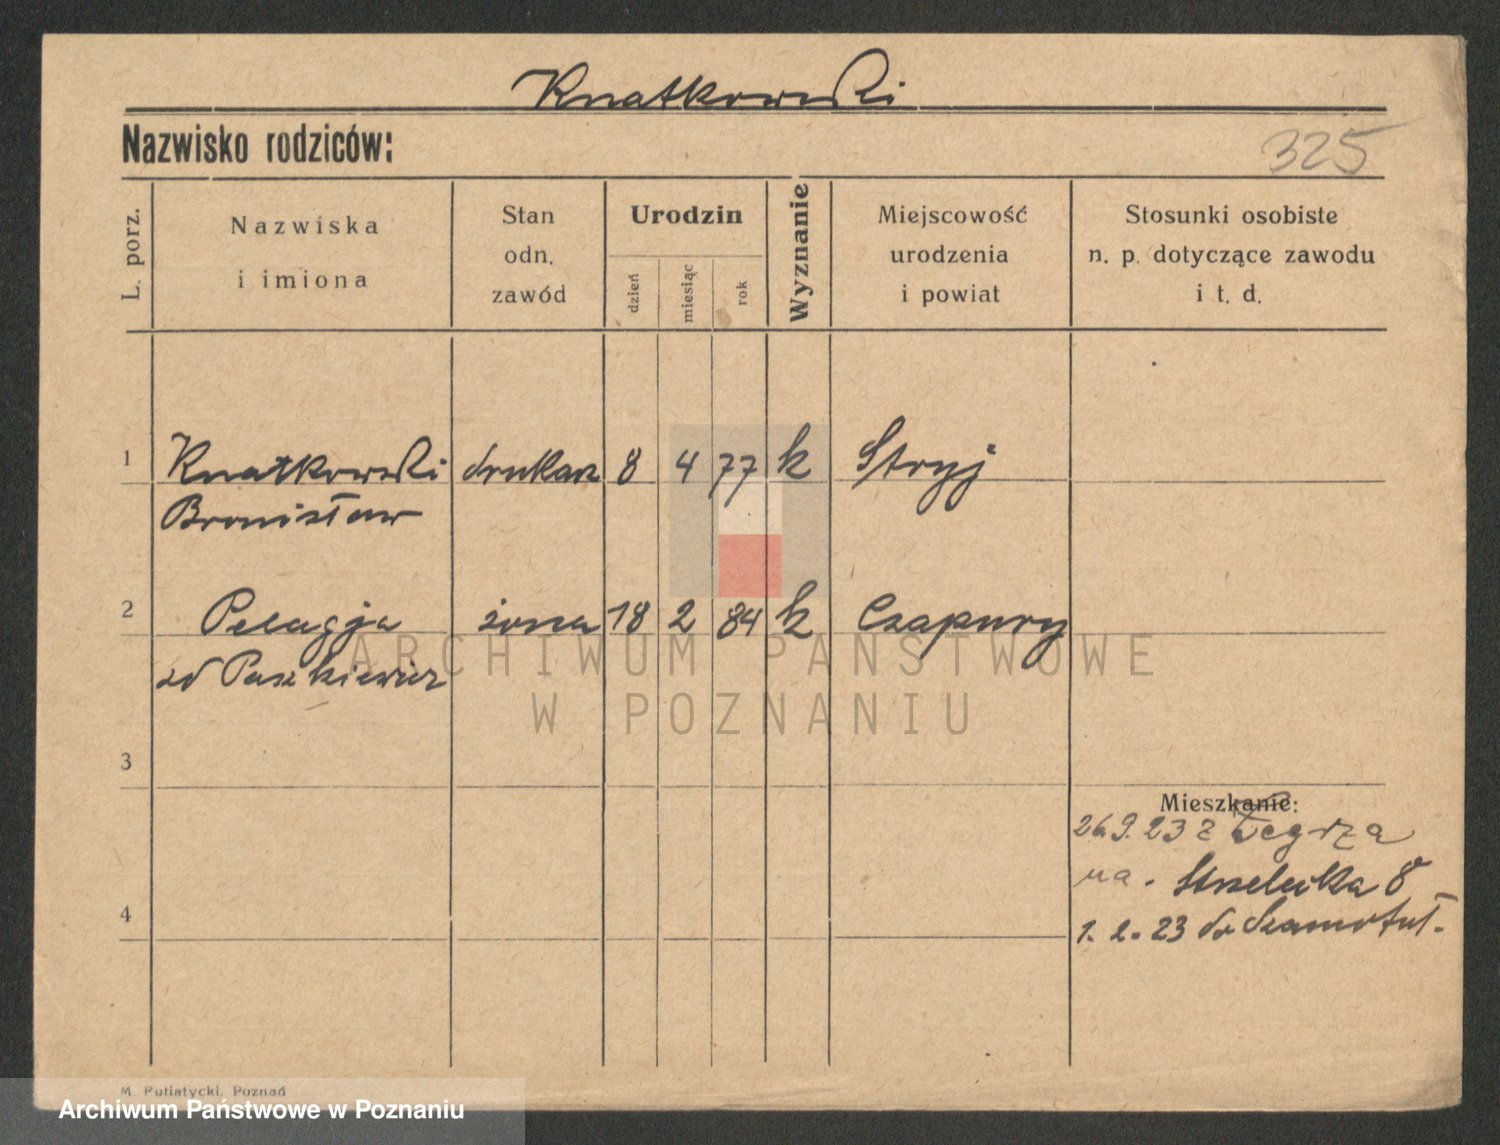 Knatkowski
Nazwisko rodziców:
325
L. porz.
Nazwiska
i imiona
Stan
odn.
zawód
Urodzin
dzień
miesiąc
rok
Wyznanie
Miejscowość
urodzenia
i powiat
Stosunki osobiste
n. p. dotyczące zawodu
i t. d.
1
Knatkowski drukarz 8 4 77 k Stryj
Bronisław
2
Pelagja żona 18 2 84 k Czapury
zd Paszkiewicz
ARCHIWUM PAŃSTWOWE
W POZNANIU
3
Mieszkanie:
26.9.23 z Żegrza
na. Strzelecka 8
4
1. 2. 23 do Szamotuł.
M. Putiatycki, Poznań
Archiwum Państwowe w Poznaniu